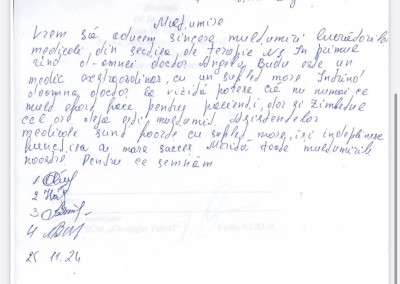 Mulțumire
Vrem să aducem sincere mulțumiri lucrătorilor
medicali din secția de terapie N5 În primul
rînd d-omnei doctor Angela Budu este un
medic extraordinar, cu un suflet mare Intrînd
doamna doctor la vizită putere că nu numai ce
mult efort face pentru pacienți, dar și zimbetul
cel are deja ești mulțumit Asistentelor
medicale sunt foarte cu suflet mare, își îndeplinesc
funcția cu mare succes Merită toate mulțumirile
noastre Pentru ce semnăm
1
2
3
4
25 11.24